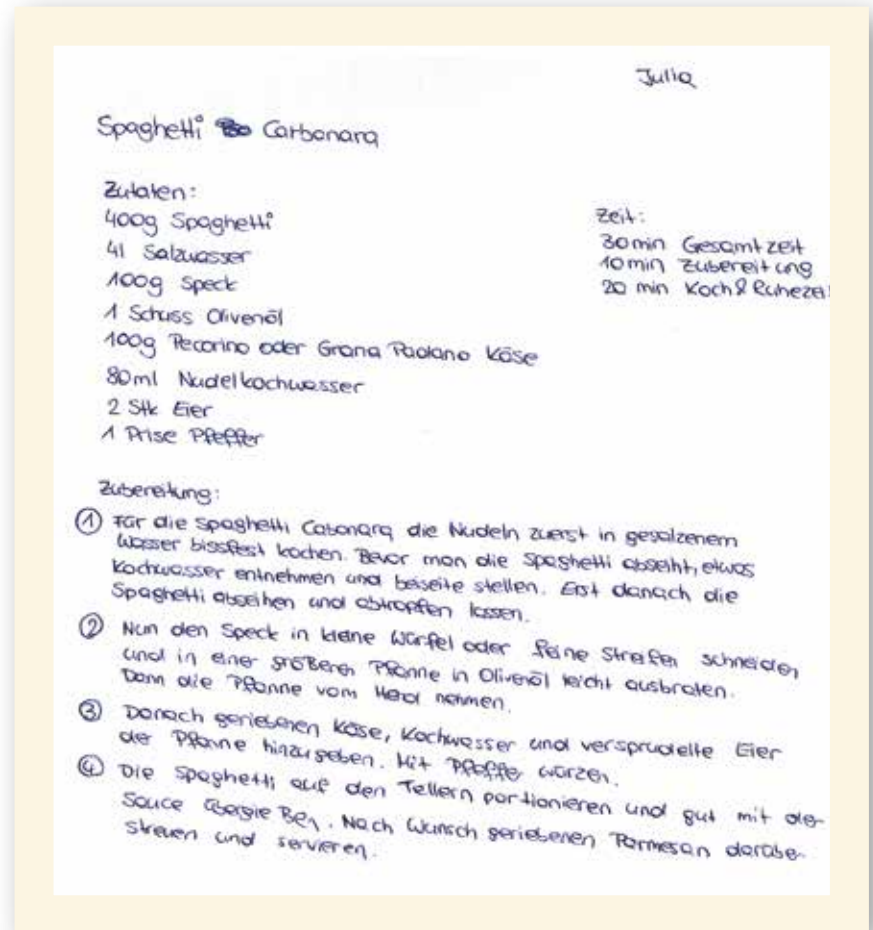 Julia
Spaghetti Carbonara
Zutaten:
400g Spaghetti
4l Salzwasser
100g Speck
1 Schuss Olivenöl
100g Pecorino oder Grana Padano Käse
80ml Nudelkochwasser
2 Stk Eier
1 Prise Pfeffer
Zeit:
30min Gesamtzeit
10min Zubereitung
20 min Koch&Ruhezei
Zubereitung:
① Für die Spaghetti Cabonara die Nudeln zuerst in gesalzenem
Wasser bissfest kochen. Bevor man die Spaghetti abseiht, etwas
Kochwasser entnehmen und beiseite stellen. Erst danach die
Spaghetti abseihen und abtropfen lassen.
② Nun den Speck in kleine Würfel oder feine Streifen schneiden
und in einer größeren Pfanne in Olivenöl leicht ausbraten.
Dann die Pfanne vom Herd nehmen.
③ Danach geriebenen Käse, Kochwasser und versprudelte Eier
der Pfanne hinzugeben. Mit Pfeffer würzen.
④ Die Spaghetti auf den Tellern portionieren und gut mit der
Sauce übergießen. Nach Wunsch geriebenen Parmesan darübe
streuen und servieren.